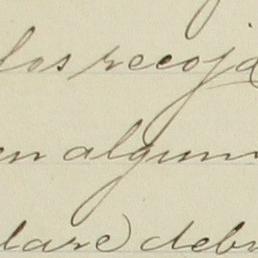 los recoja
en algun
lare) deb